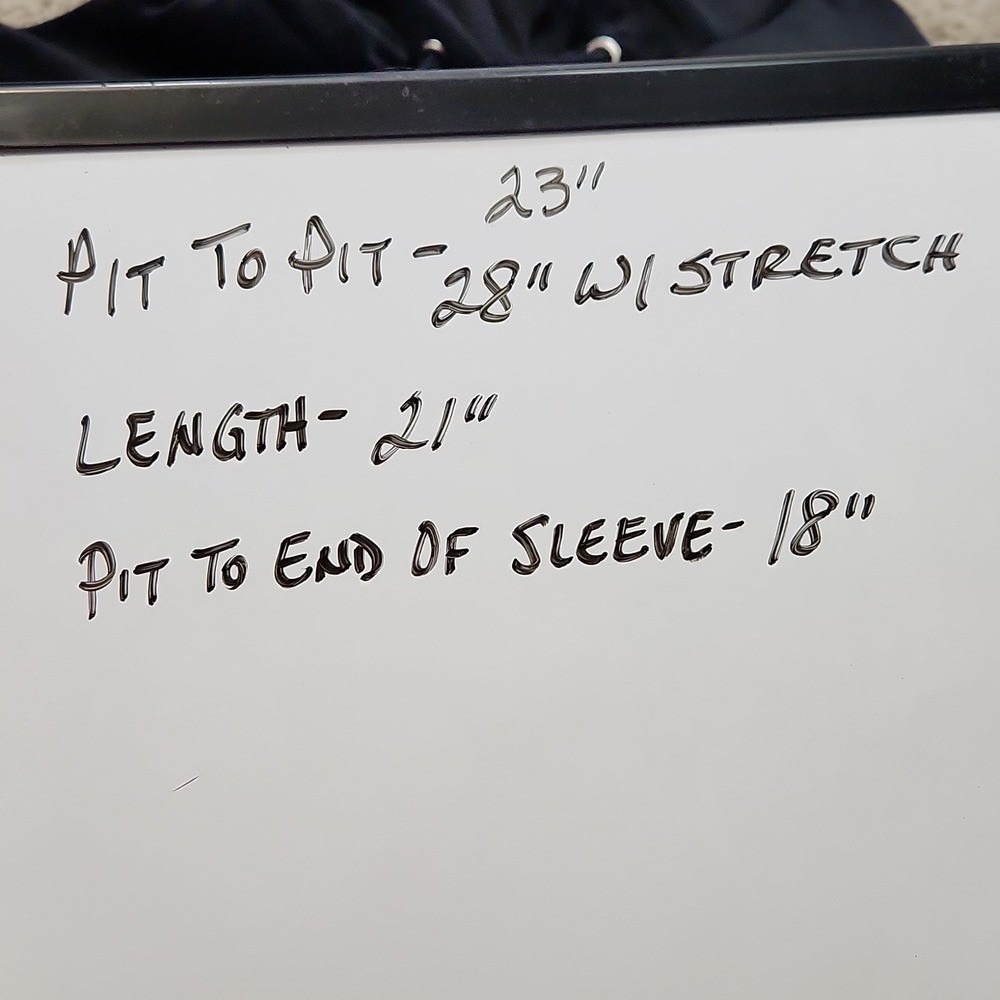 23"
PIT TO PIT - 28" W/ STRETCH
LENGTH- 21"
PIT TO END OF SLEEVE- 18"